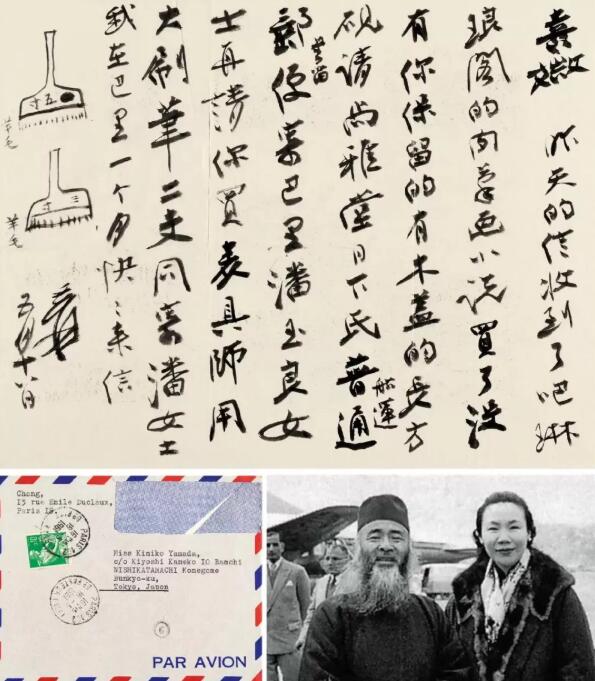 喜媺 昨天的信收到了吧琳
琅阁的肉筆画小说買了沒
有你保留的有木盖的長方
砚請尚雅堂日下氏普通
船運
郵便寄巴里潘玉良女
士再請你買表具師用
大刷筆二支同寄潘女士
我在巴里一个月快〻来信
爰
五月十八日
五寸
羊毛
三寸
羊毛
Chang,
13 rue Emile Duclaux,
Paris 15.
Miss Kimiko Yamada,
c/o Kiyoshi Kameko 10 Banchi
NISHIKATAMACHI Komegome
Bunkyo-ku,
Tokyo, Japon
6
PAR AVION